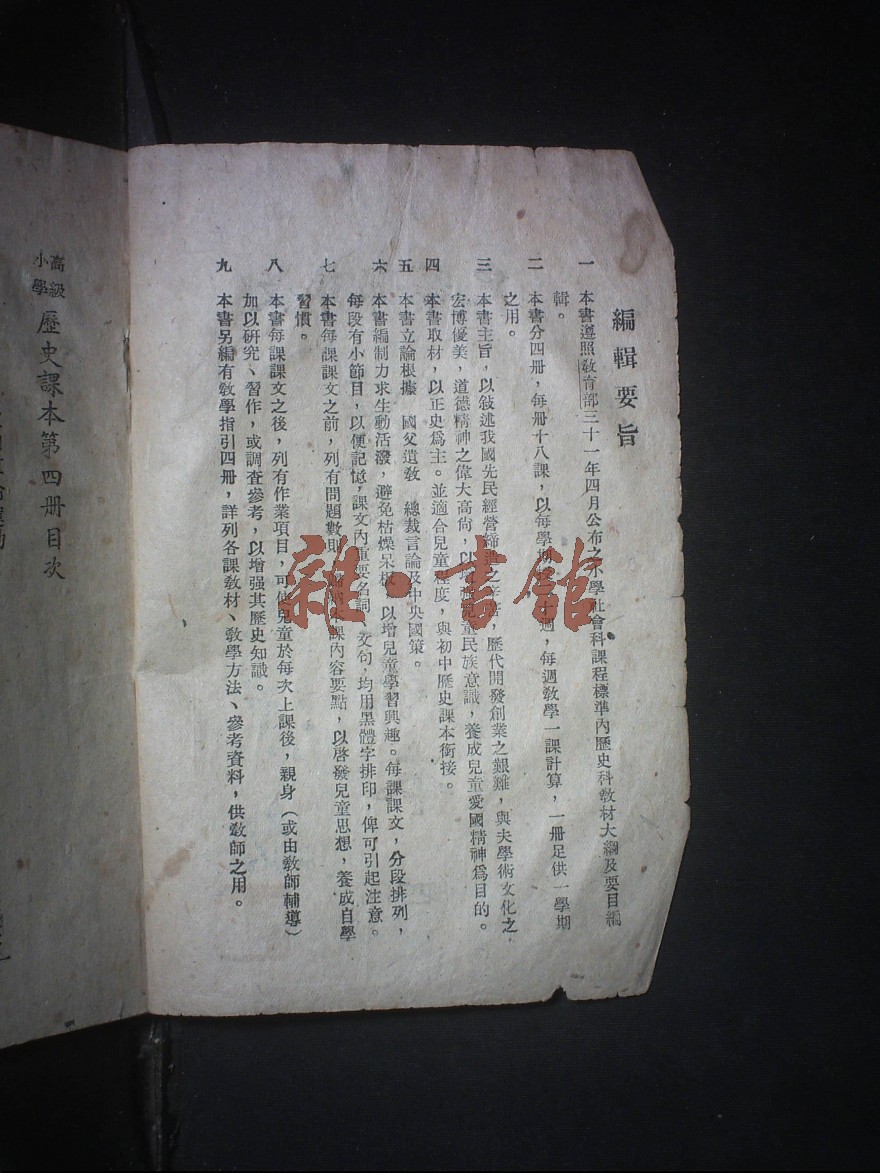 編輯要旨
一 本書遵照敎育部三十一年四月公布之小學社會科課程標準內歷史科敎材大綱及要目編
輯。
二 本書分四册，每册十八課，以每學期
週，每週敎學一課計算，一册足供一學期
之用。
三 本書主旨，以敍述我國先民經營締造之
，歷代開發創業之艱難，與夫學術文化之
宏博優美，道德精神之偉大高尙，以增
兒童民族意識，養成兒童愛國精神爲目的。
四 本書取材，以正史爲主。並適合兒童程度，與初中歷史課本銜接。
五 本書立論根據 國父遺敎 總裁言論及中央國策。
六 本書編制力求生動活潑，避免枯燥呆板，以增兒童學習興趣。每課課文，分段排列，
每段有小節目，以便記憶，課文內重要名詞 文句，均用黑體字排印，俾可引起注意。
七 本書每課課文之前，列有問題數則，
課內容要點，以啓發兒童思想，養成自學
習慣。
八 本書每課課文之後，列有作業項目，可使兒童於每次上課後，親身（或由敎師輔導）
加以硏究、習作，或調查參考，以增强其歷史知識。
九 本書另編有敎學指引四册，詳列各課敎材、敎學方法、參考資料，供敎師之用。
高級小學 歷史課本第四册目次
雜·書館